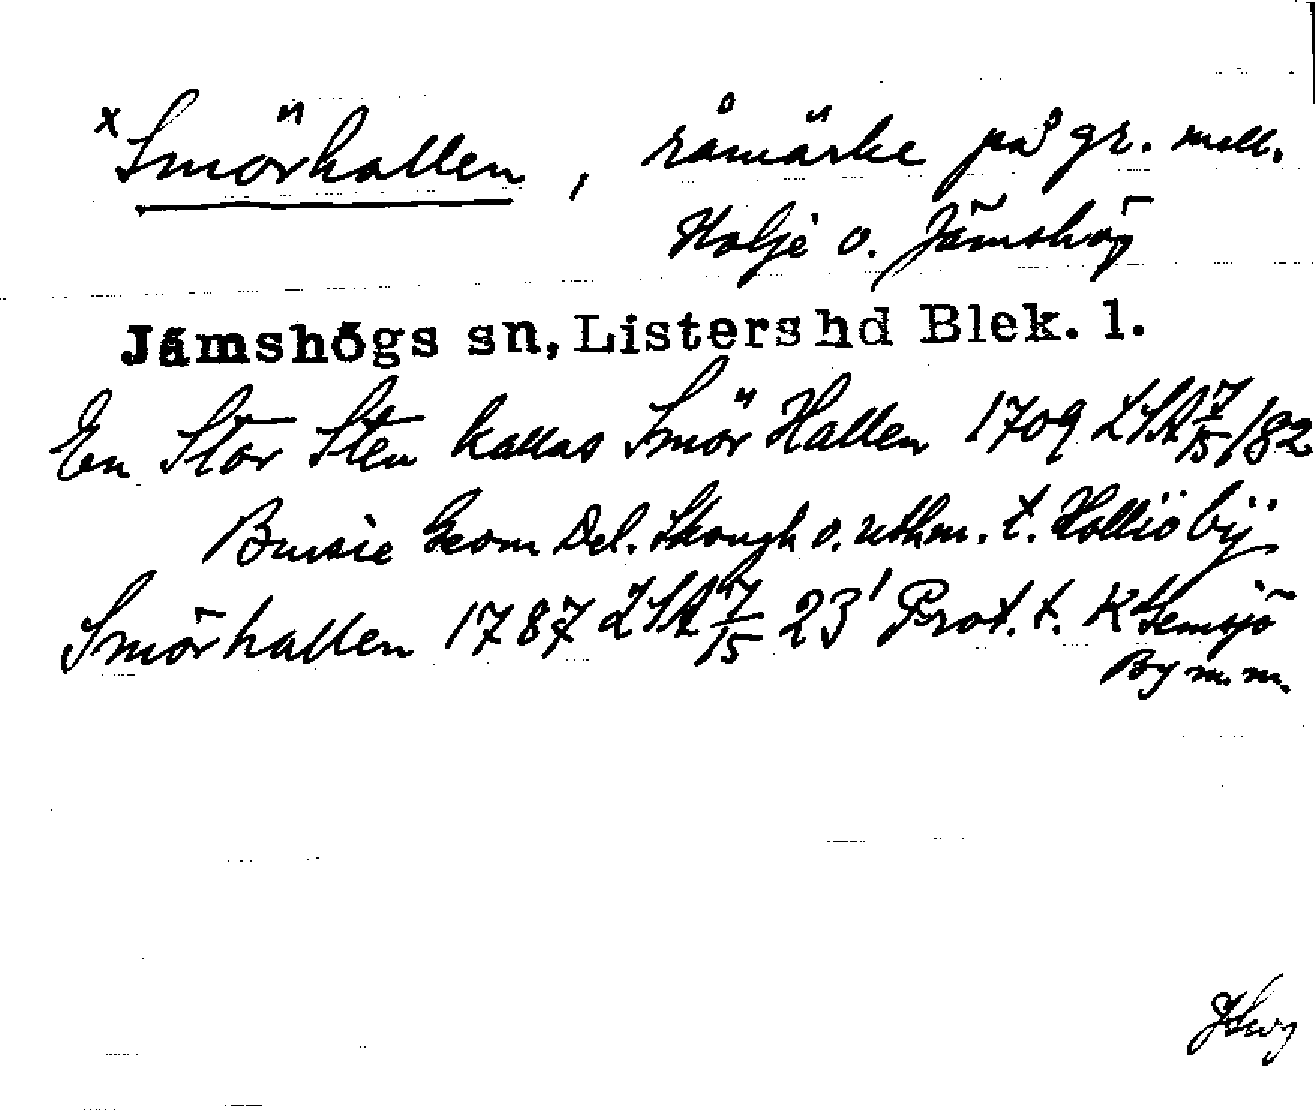 x Smörhallen, råmärke på gr. mell.
Holje o. Jämshög
Jämshögs sn, Listers hd Blek. l.
En Stor Sten kallas Smör Hallen 1709 LSA 7/15/82
Geom Del. Skough o. uthm. t. Holliö bÿ
Smörhallen 1787 LSA 7/15 23' Prot. t.
By m. m.